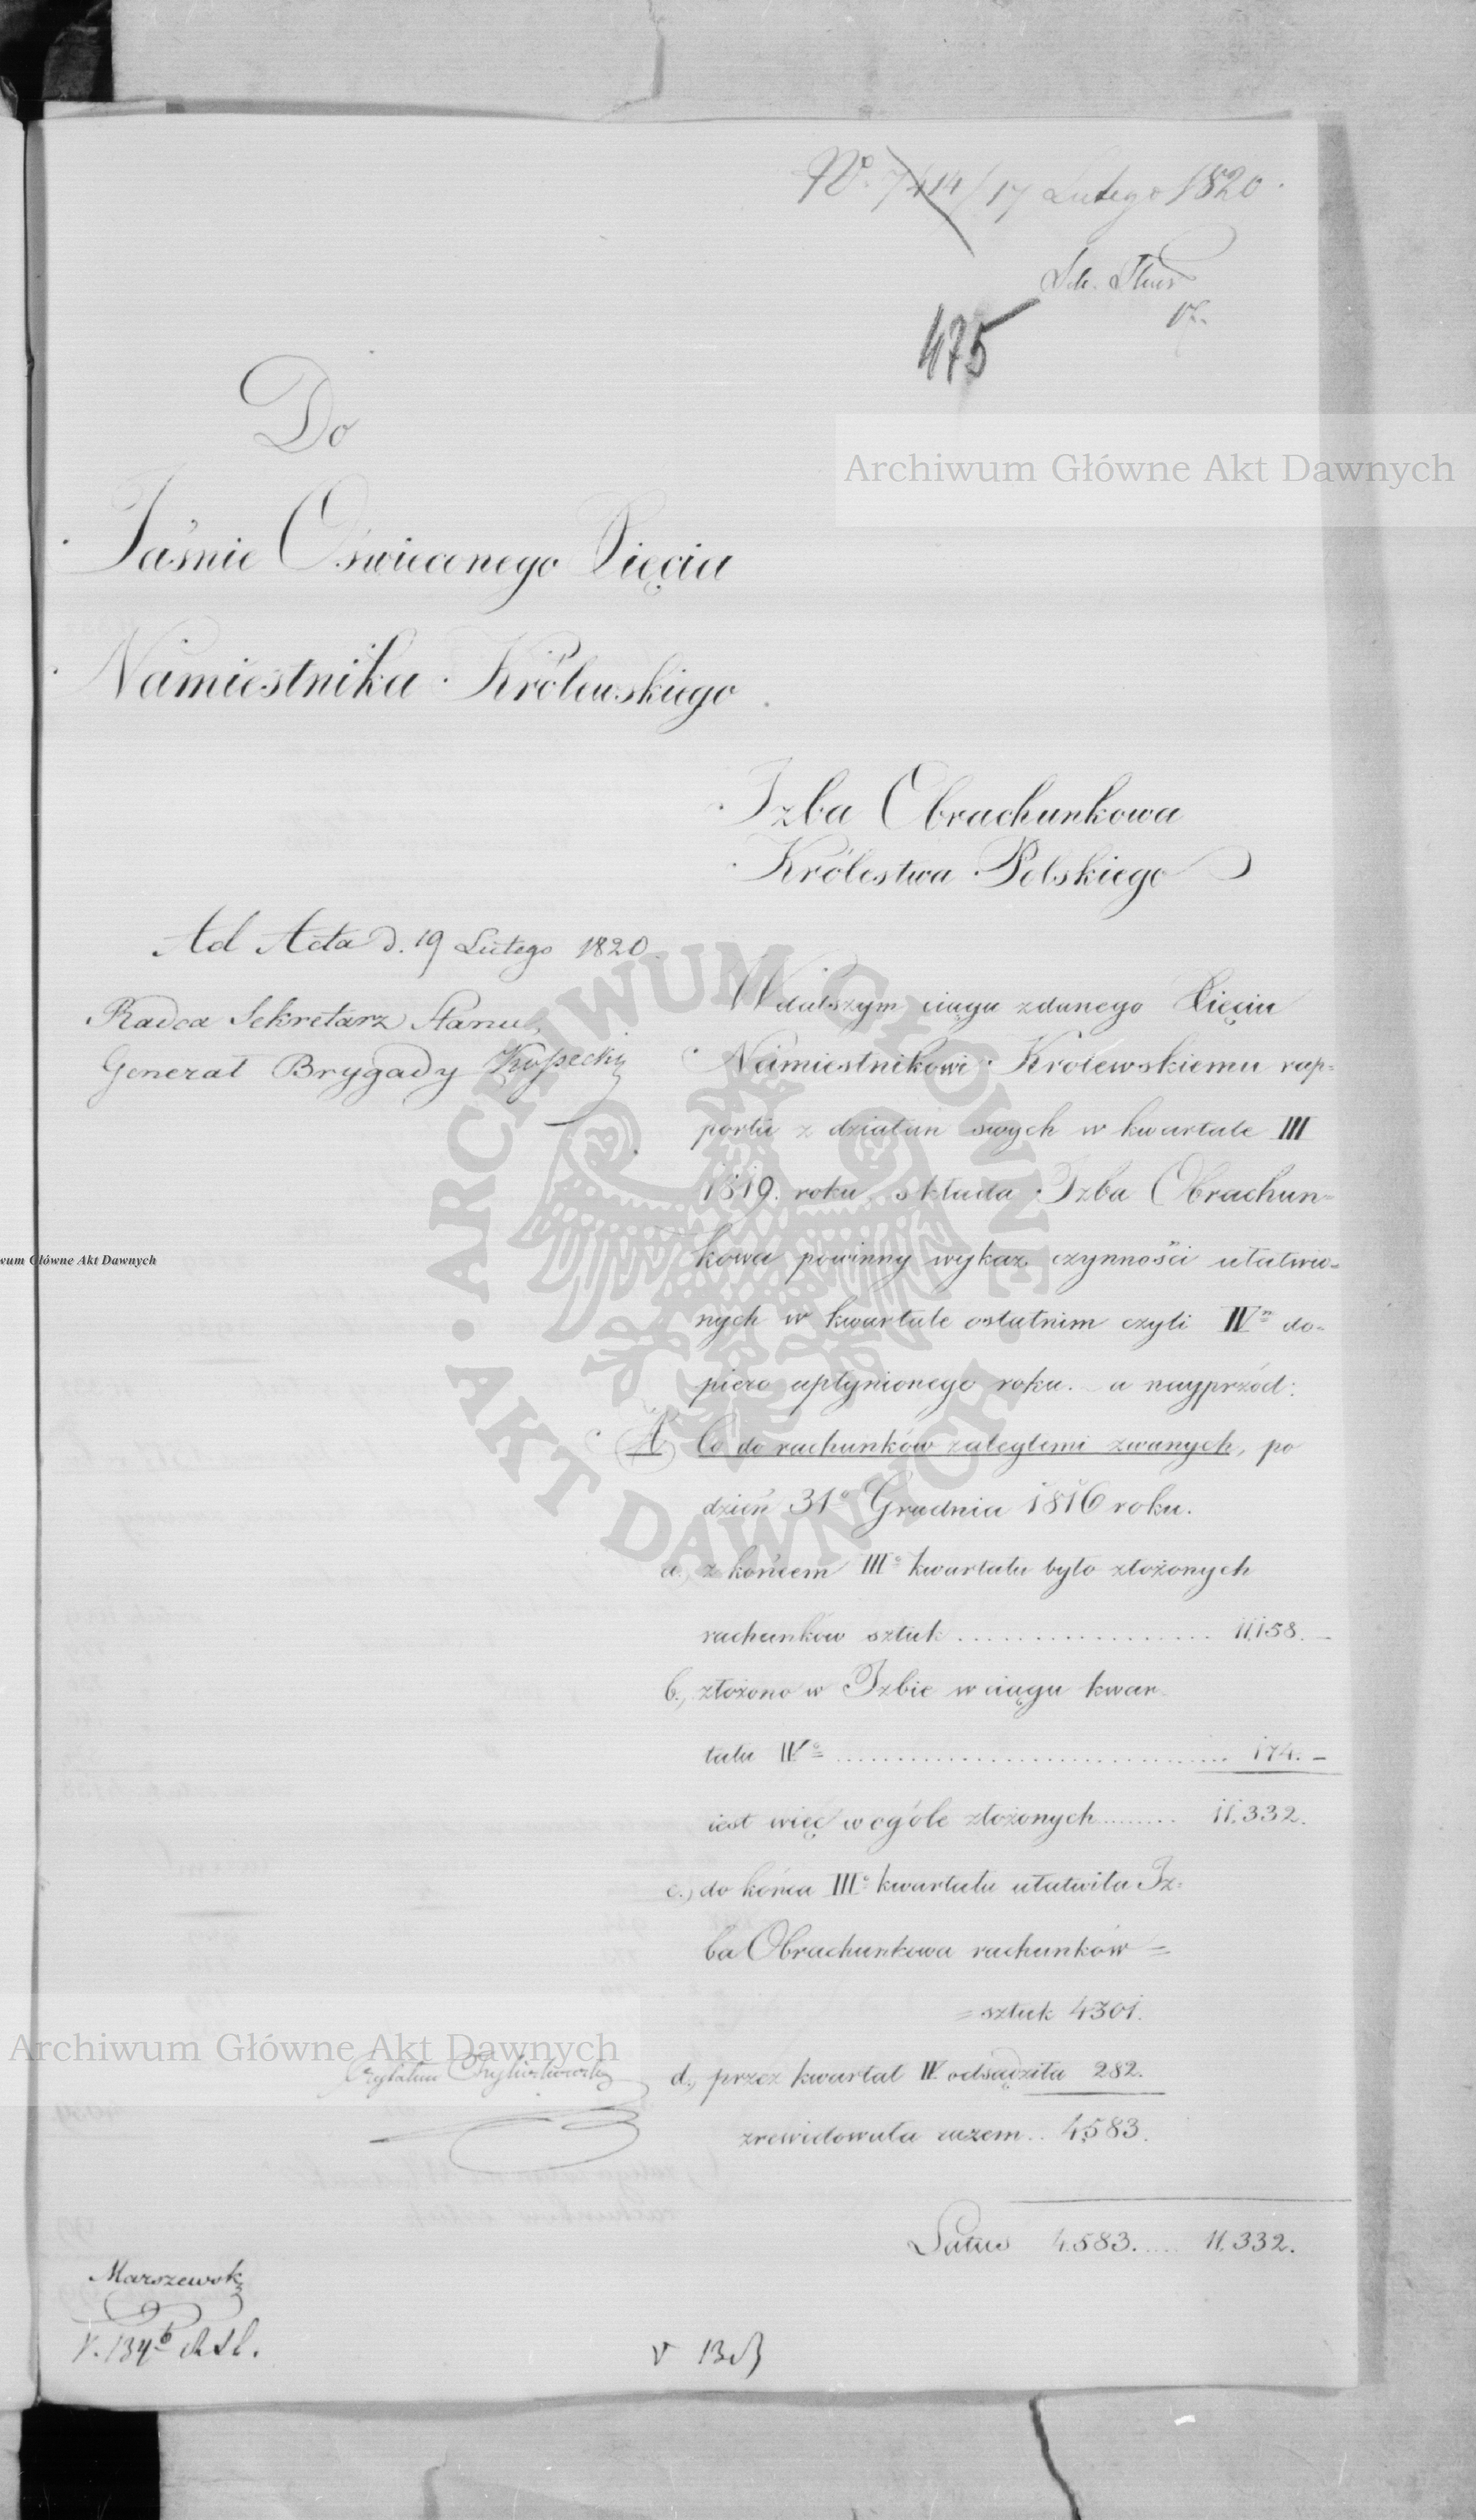 No. 7414/17 Lutego 1820.
475
Archiwum Główne Akt Dawnych
Do
Jaśnie Oświeconego Xięcia
Namiestnika Królewskiego.
Izba Obrachunkowa
Królestwa Polskiego
Ad Acta d. 19 Lutego 1820.
Radca Sekretarz Stanu,
Generał Brygady Kossecki
W dalszym ciągu zdanego Xięciu
Namiestnikowi Królewskiemu rap=
portu z działań swych w kwartale III
1819. roku, składa Izba Obrachun=
kowa powinny wykaz czynności ułatwio=
nych w kwartale ostatnim czyli IVm do=
piero upłynionego roku. a nayprzód:
A Co do rachunków zaległemi zwanych, po
dzień 31o Grudnia 1816 roku.
a. z końcem IIIo kwartału było złożonych
rachunków sztuk .................. 11,158. –
b., złożono w Izbie w ciągu kwar=
tału IVo .............................. 174. –
iest więc w ogóle złożonych ........ 11,332.
c., do końca IIIo kwartału ułatwiła Iz=
ba Obrachunkowa rachunków =
= sztuk 4301.
d., przez kwartał IV odsądziła 282.
zrewidowała razem .. 4,583.
Latus 4,583. .... 11,332.
Marszewski
ARCHIWUM GŁÓWNE AKT DAWNYCH
wum Główne Akt Dawnych
Archiwum Główne Akt Dawnych